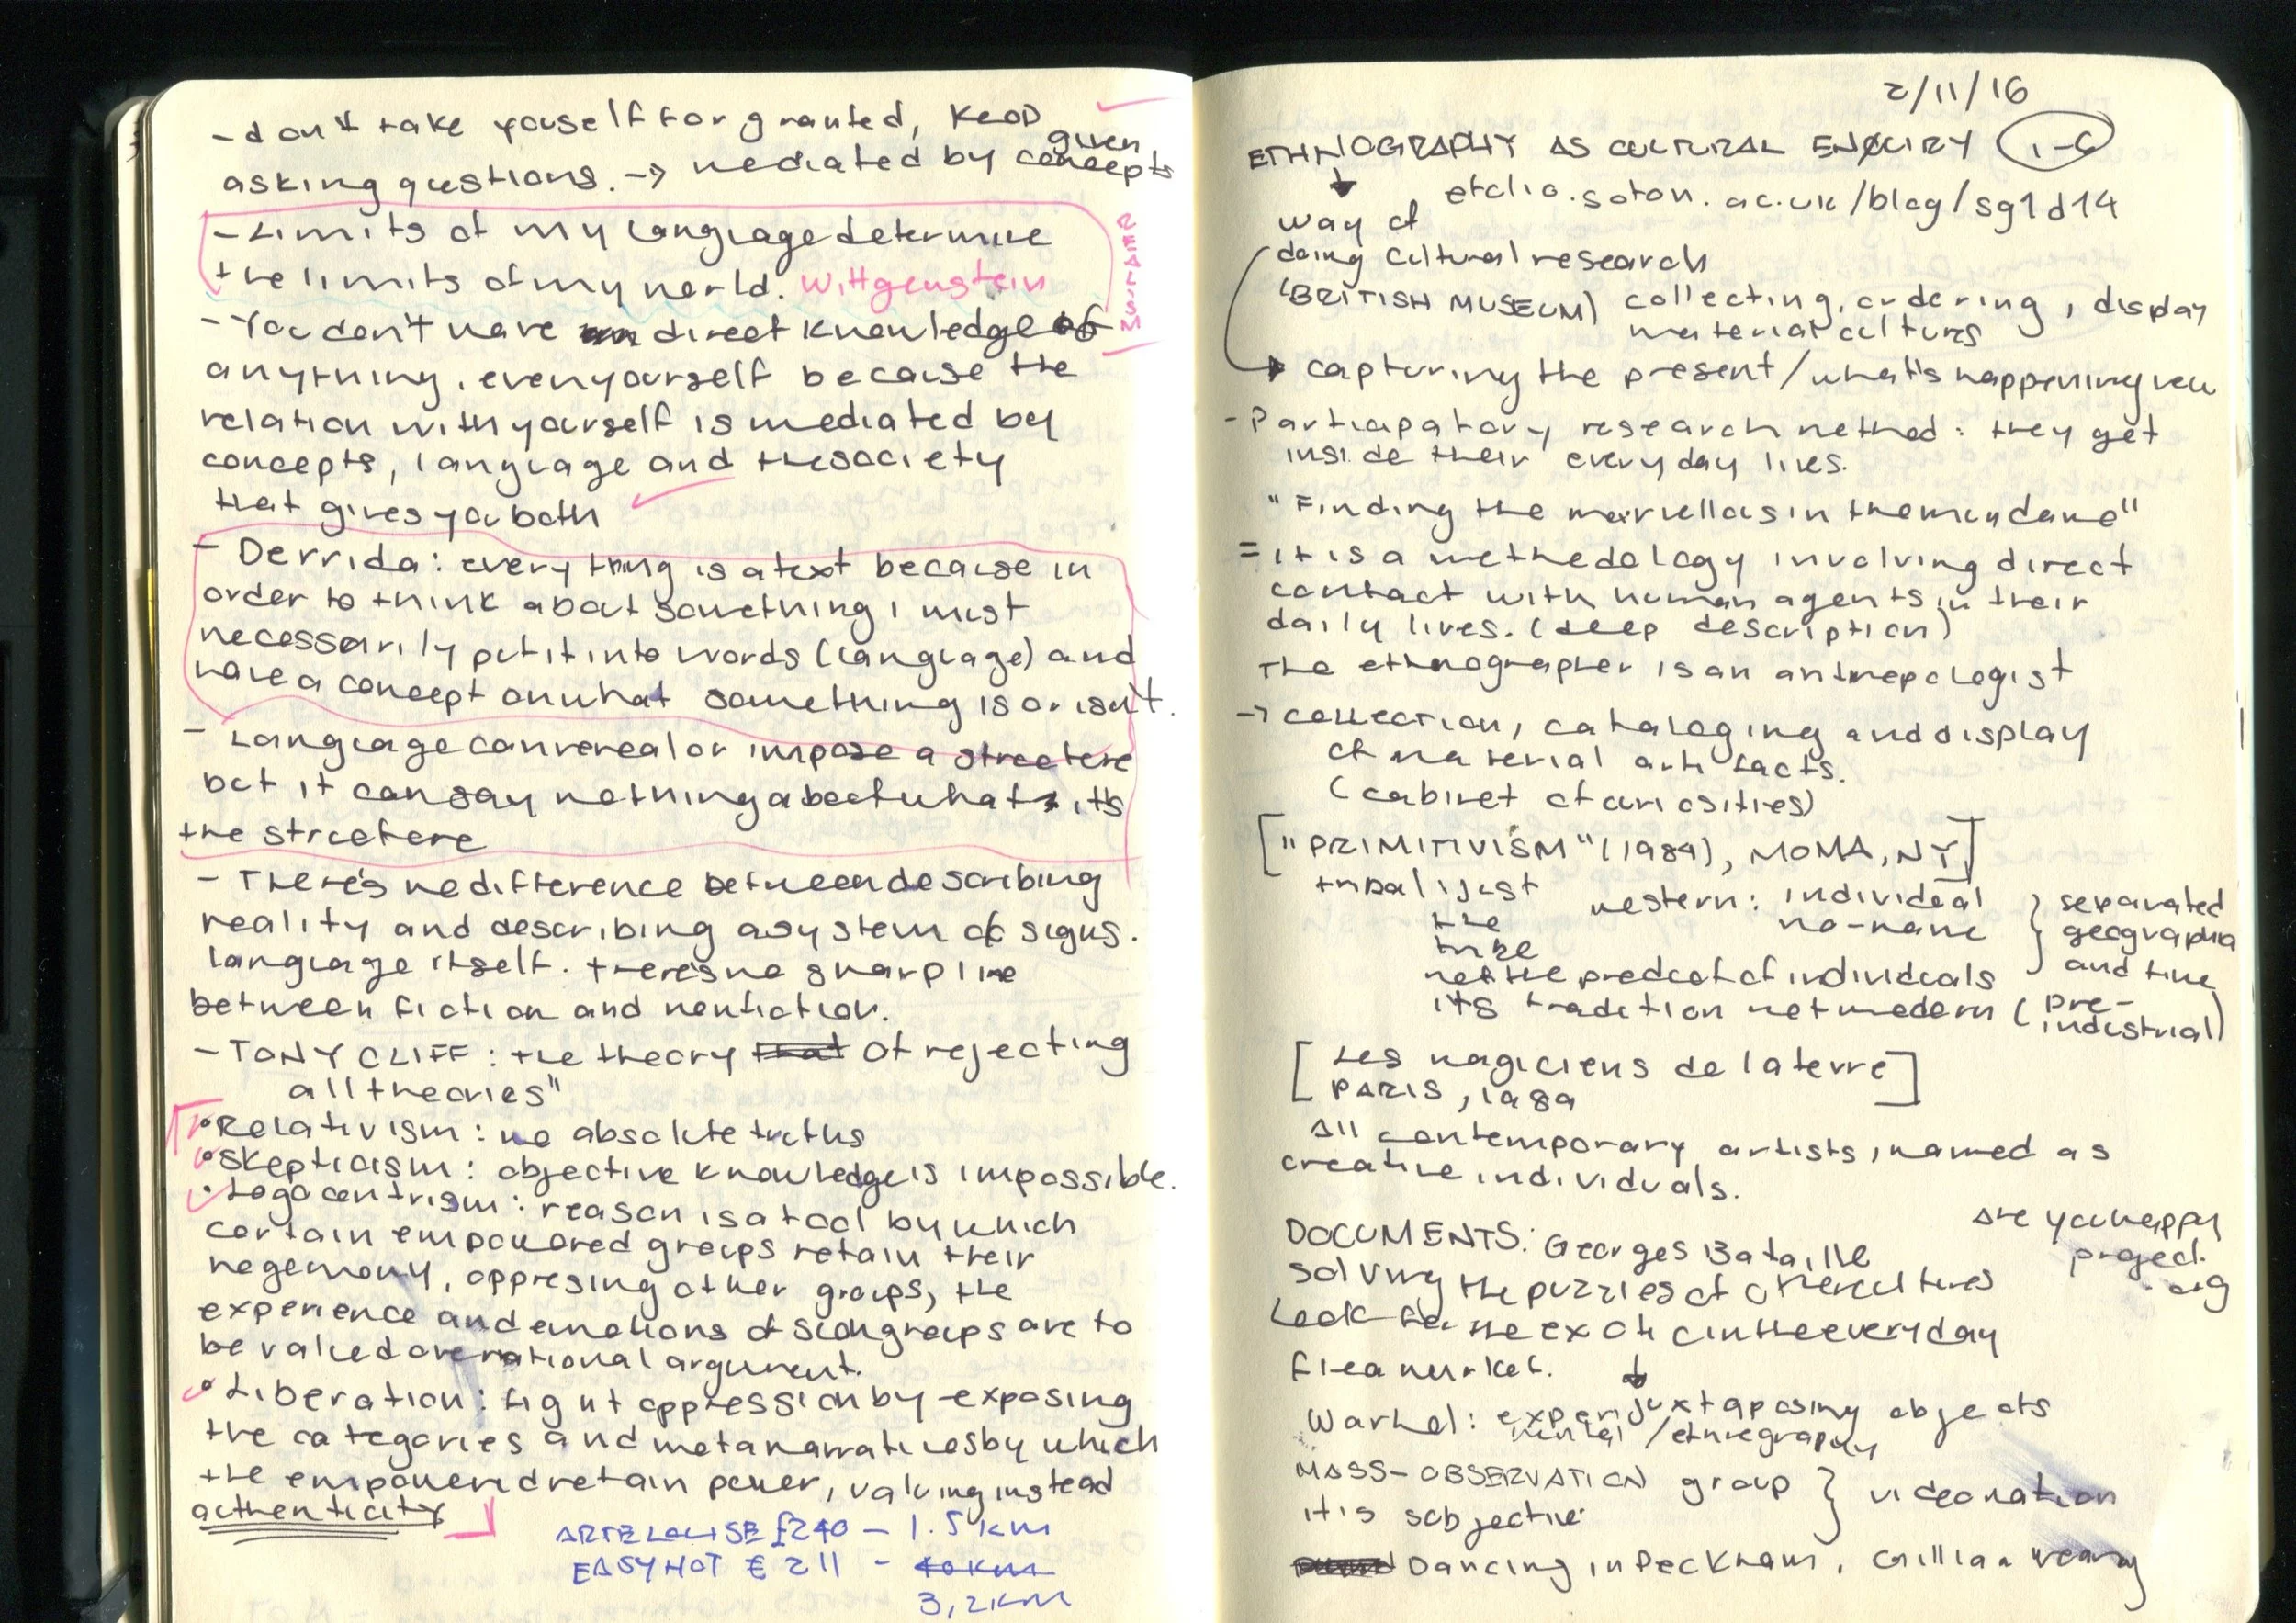 - don't take youself for granted, keep
asking questions. → mediated by given concepts
- Limits of my language determine
the limits of my world. Wittgenstein
REALISM
- You don't have direct knowledge of
anything, even yourself because the
relation with yourself is mediated by
concepts, language and the society
that gives you both
- Derrida: everything is a text because in
order to think about something I must
necessarily put it into words (language) and
have a concept on what something is or isn't.
- Language can reveal or impose a structure
but it can say nothing about what it's
the structure
- There's no difference between describing
reality and describing a system of signs.
language itself. there's no sharp line
between fiction and nonfiction.
- TONY CLIFF: the theory that of rejecting
all theories"
• Relativism: no absolute truths
• Skepticism: objective knowledge is impossible.
• Logocentrism: reason is a tool by which
certain empowered groups retain their
hegemony, oppresing other groups, the
experience and emotions of such groups are to
be valued over rational argument.
• Liberation: fight oppression by exposing
the categories and metanarratives by which
the empowered retain power, valuing instead
authenticity
ARTELOUISE £240 - 1.5 km
EASYHOT € 211 - 10 km
3,2 KM
2/11/16
ETHNOGRAPHY AS CULTURAL ENQUIRY
.soton.ac.uk/blog/sg1d14
way of
doing cultural research
(BRITISH MUSEUM) collecting, ordering, display
material cultures
capturing the present / what's happening now
- Participatory research method: they get
inside their everyday lives.
"Finding the marvellous in the mundane"
= it is a methodology involving direct
contact with human agents in their
daily lives. (deep description)
The ethnographer is an anthropologist
→ collection, cataloging and display
of material artifacts.
(cabinet of curiosities)
["PRIMITIVISM" (1984), MOMA, NY]
tribal: just the tribe
western: individual
no-name
} separated
and time
not the product of individuals
its tradition not modern (pre-
industrial)
[Les magiciens de la terre]
PARIS, 1989
All contemporary artists, named as
creative individuals.
DOCUMENTS: Georges Bataille
are you happy
project
.org
solving the puzzles of other cultures
Look for the exotic in the everyday
flea market.
Warhol: experimental / ethnography
juxtaposing objects
MASS-OBSERVATION group } video nation
it is subjective
Dancing in Peckham, Gillian Wearing